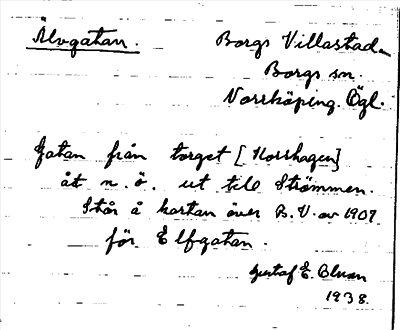 Älvgatan.
Borgs Villastad.
Borgs sn.
Norrköping. Ögl.
Gatan från torget [Korshagen]
åt n. ö. ut till Strömmen.
Står å kartan över B.V. av 1907
för Elfgatan.
Gustaf E. Blman
1938.